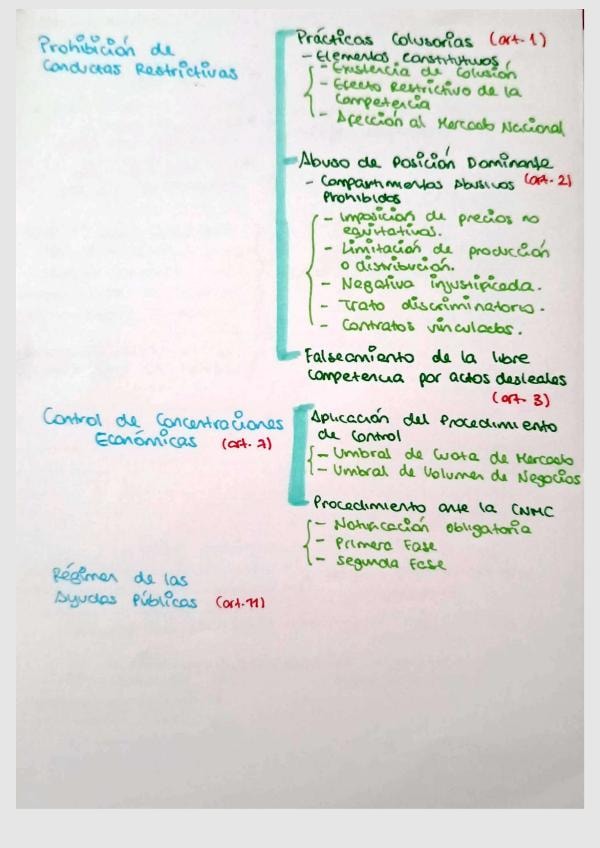 Prohibición de
Conductas Restrictivas
Prácticas Colusorias (art. 1)
- Elementos constitutivos
- Existencia de Colusión
- Efecto Restrictivo de la
Competencia
- Afección al Mercado Nacional
Abuso de Posición Dominante
(art. 2)
- Compartimientos Abusivos
Prohibidos
- Imposición de precios no
equitativos.
- Limitación de producción
o distribución.
- Negativa injustificada.
- Trato discriminatorio.
- Contratos vinculados.
Falseamiento de la libre
Competencia por actos desleales
(art. 3)
Control de Concentraciones
Económicas (art. 7)
Aplicación del Procedimiento
de Control
- Umbral de Cuota de Mercado
- Umbral de Volumen de Negocios
Procedimiento ante la CNMC
- Notificación obligatoria
- Primera Fase
- Segunda Fase
Régimen de las
Ayudas Públicas (art. 11)